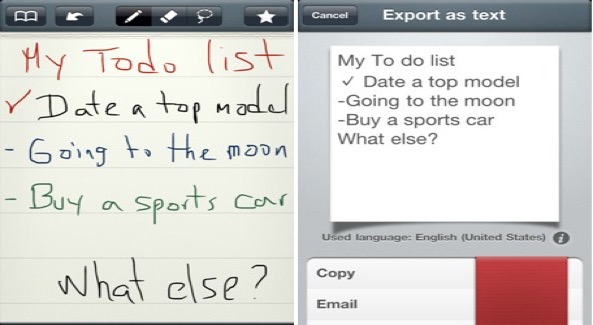 My Todo list
✓ Date a top model
- Going to the moon
- Buy a sports car
What else?
Cancel Export as text
My To do list
✓ Date a top model
-Going to the moon
-Buy a sports car
What else?
Used language: English (United States) i
Copy
Email